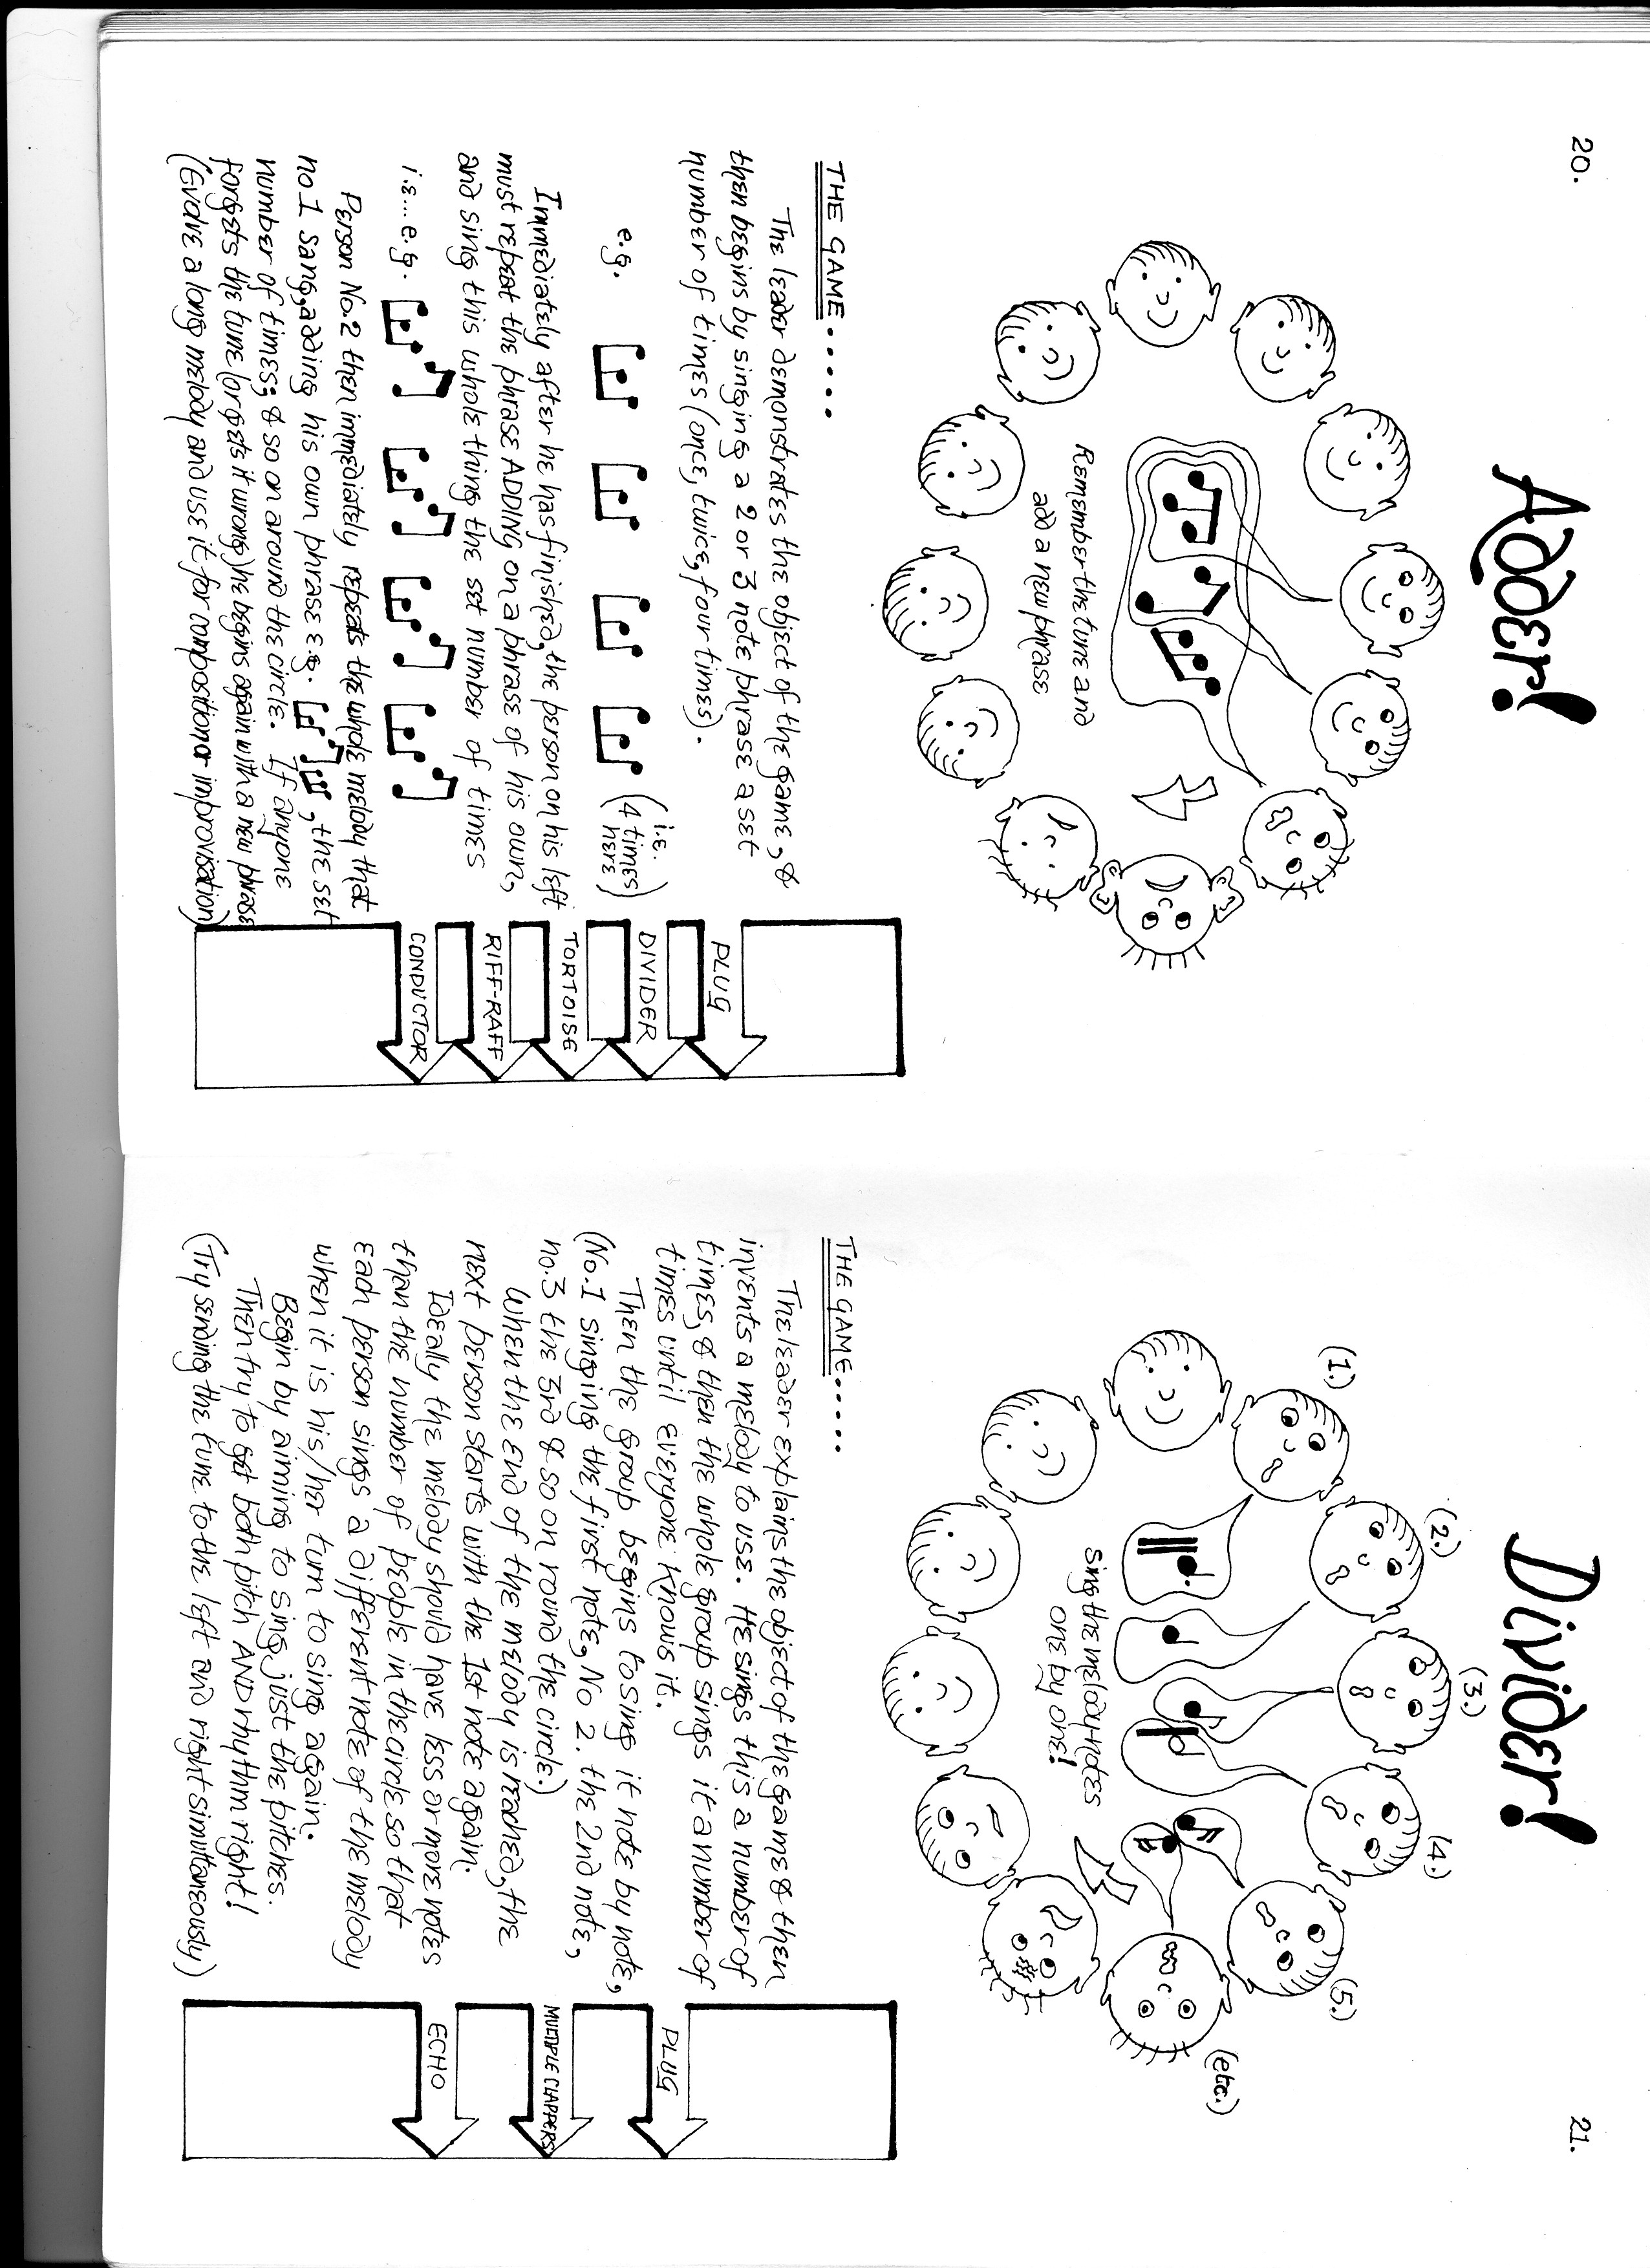 20.
Adder!
Remember the tune and
add a new phrase
THE GAME.....
The leader demonstrates the object of the game, &
then begins by singing a 2 or 3 note phrase a set
number of times (once, twice, four times).
e.g.
(i.e.
4 times
here)
Immediately after he has finished, the person on his left
must repeat the phrase ADDING on a phrase of his own,
and sing this whole thing the set number of times
i.e... e.g.
Person No.2 then immediately repeats the whole melody that
no.1 sang, adding his own phrase e.g. , the set
number of times; & so on around the circle. If anyone
forgets the tune (or gets it wrong) he begins again with a new phrase
(Evolve a long melody and use it for composition or improvisation)
PLUG
DIVIDER
TORTOISE
RIFF-RAFF
CONDUCTOR
21.
Divider!
(1.)
(2.)
(3.)
(4.)
(5.)
(etc.)
Sing the melody-notes
one by one!
THE GAME.....
The leader explains the object of the game & then
invents a melody to use. He sings this a number of
times, & then the whole group sings it a number of
times until everyone knows it.
Then the group begins to sing it note by note,
(No.1 singing the first note, No 2. the 2nd note,
no.3 the 3rd & so on round the circle.)
When the end of the melody is reached, the
next person starts with the 1st note again.
Ideally the melody should have less or more notes
than the number of people in the circle so that
each person sings a different note of the melody
when it is his/her turn to sing again.
Begin by aiming to sing just the pitches.
Then try to get both pitch AND rhythm right!
(Try sending the tune to the left and right simultaneously)
PLUG
MULTIPLE CLAPPERS
ECHO